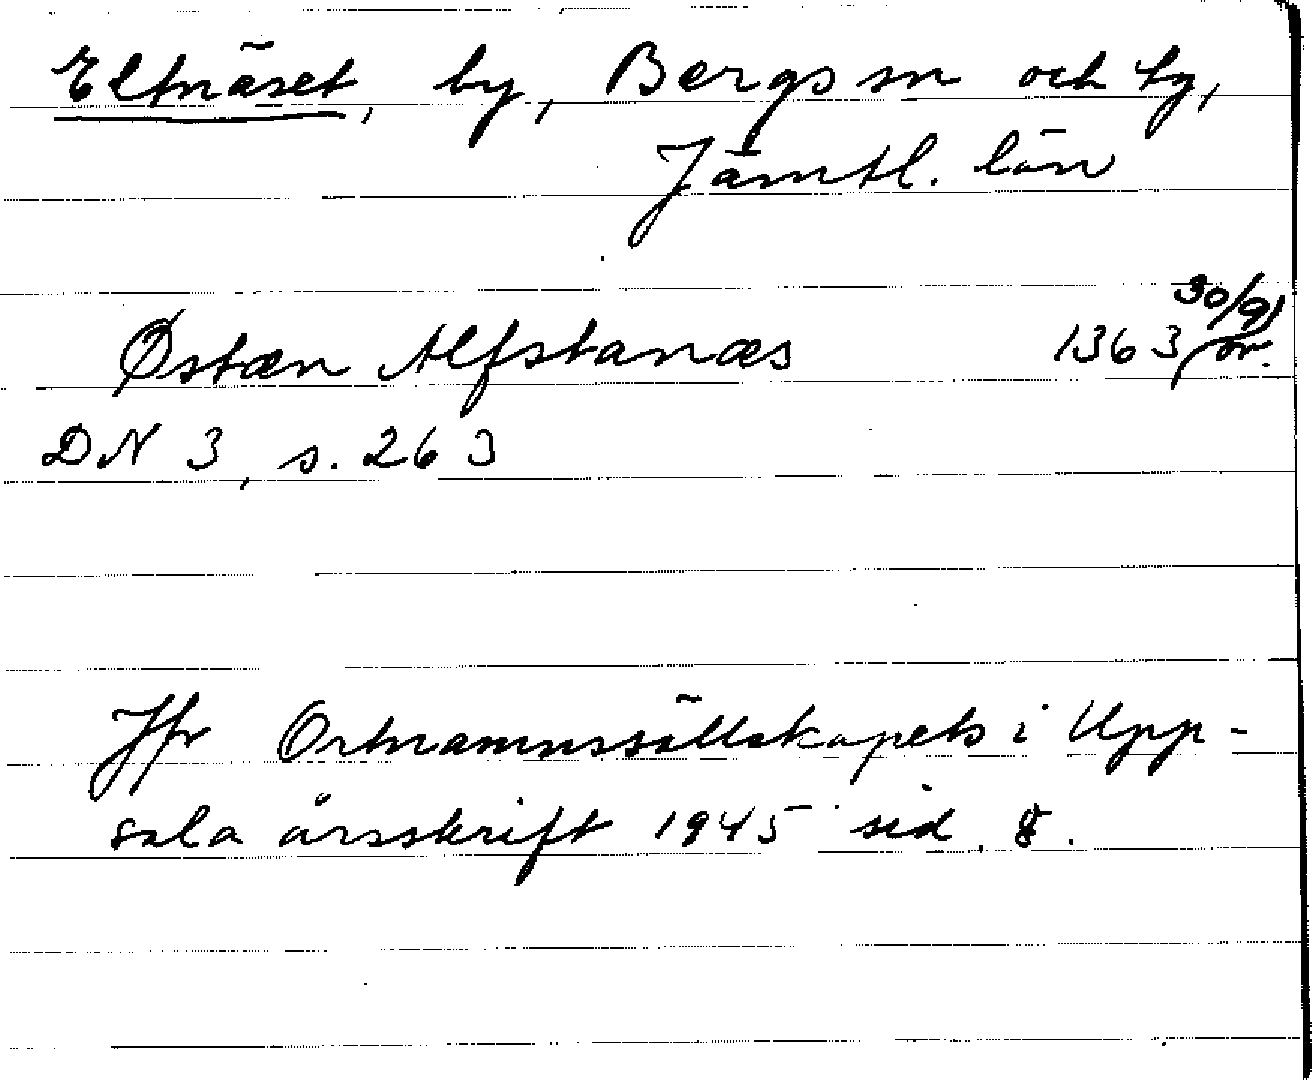 Elfnäset, by, Bergs sn och tg,
Jämtl. län
30/9
Østæn Alfstanæs 1363 or.
DN 3, s. 263
Jfr Ortnamnssällskapets i Upp-
sala årsskrift 1945 sid. 8.